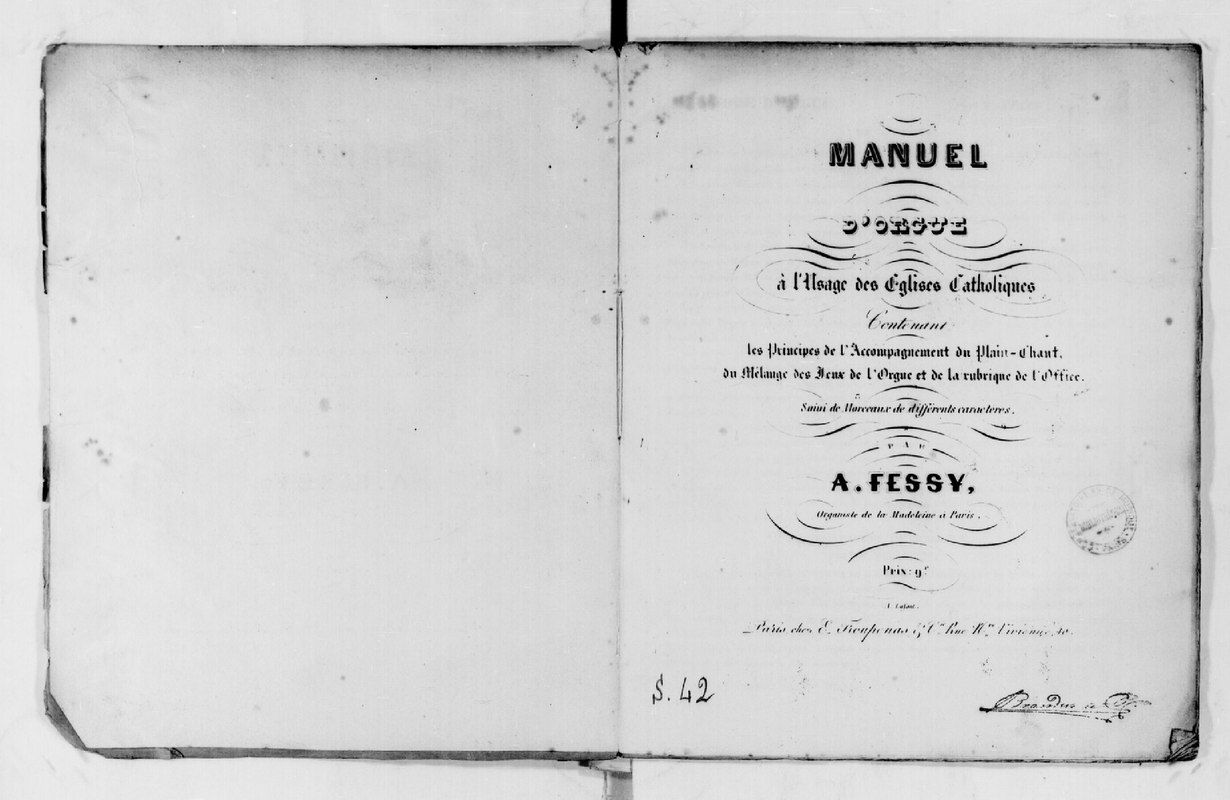 MANUEL
D'ORGUE
à l'Usage des Eglises Catholiques
Contenant
les Principes de l'Accompagnement du Plain-Chant,
du Mélange des Jeux de l'Orgue et de la rubrique de l'Office.
Suivi de Morceaux de différents caracteres.
PAR
A. FESSY,
Organiste de la Madeleine à Paris.
Prix: 9f
Paris chez E. Troupenas & Cie Rue Nve Vivienne, 40.
S. 42
Brandus et Cie